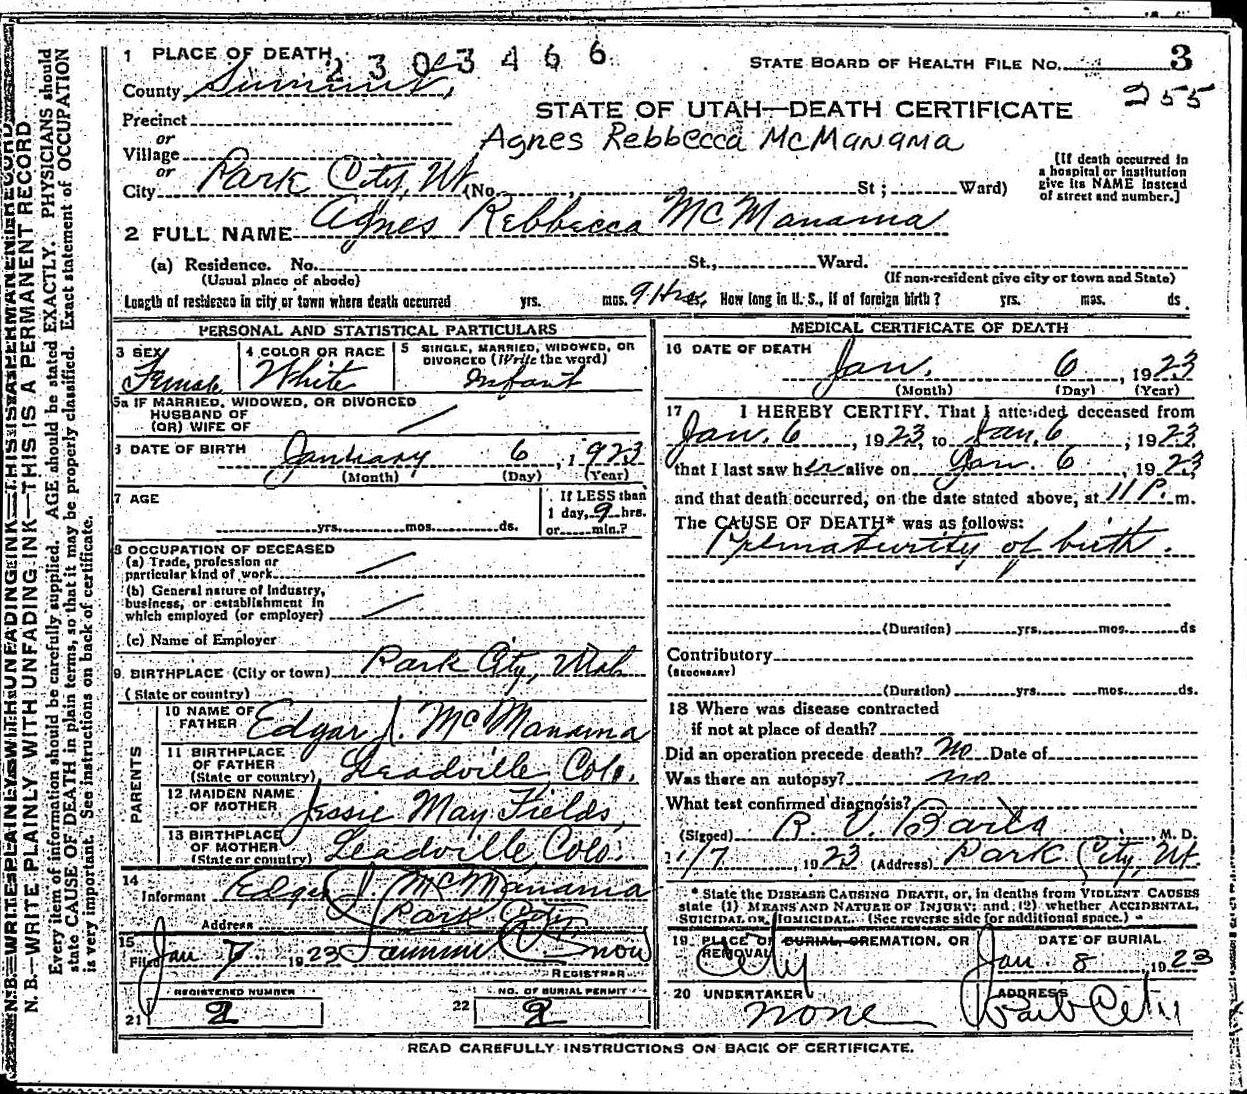 1 PLACE OF DEATH
2303466
STATE BOARD OF HEALTH FILE NO. 3
255
County Summit,
STATE OF UTAH—DEATH CERTIFICATE
Precinct
Agnes Rebbecca McManama
or
Village
or
City Park City, Ut. (No. St; Ward)
[If death occurred in
a hospital or institution
give its NAME instead
of street and number.]
2 FULL NAME Agnes Rebbecca McManama
(a) Residence. No. St., Ward.
(Usual place of abode) (If non-resident give city or town and State)
Length of residence in city or town where death occurred yrs. mos. 9 Hrs. How long in U. S., if of foreign birth? yrs. mos. ds.
PERSONAL AND STATISTICAL PARTICULARS
3 SEX
Female
4 COLOR OR RACE
White
5 SINGLE, MARRIED, WIDOWED, OR
DIVORCED (Write the word)
Infant
5a IF MARRIED, WIDOWED, OR DIVORCED
HUSBAND OF
(OR) WIFE OF
6 DATE OF BIRTH January 6, 1923
(Month) (Day) (Year)
7 AGE
yrs. mos. ds.
If LESS than
1 day, 9 hrs.
or min.?
8 OCCUPATION OF DECEASED
(a) Trade, profession or
particular kind of work
(b) General nature of Industry,
business, or establishment in
which employed (or employer)
(c) Name of Employer
9. BIRTHPLACE (City or town) Park City, Utah
(State or country)
PARENTS
10 NAME OF
FATHER Edgar J. McManama
11 BIRTHPLACE
OF FATHER
(State or country) Leadville Colo.
12 MAIDEN NAME
OF MOTHER Jessie May Fields,
13 BIRTHPLACE
OF MOTHER
(State or country) Leadville Colo.
14
Informant Edgar J. McManama
Address Park City,
15
Filed Jan 7 1923 Snow
REGISTRAR
REGISTERED NUMBER
21 2
NO. OF BURIAL PERMIT
22 2
MEDICAL CERTIFICATE OF DEATH
16 DATE OF DEATH
Jan. 6, 1923
(Month) (Day) (Year)
17 I HEREBY CERTIFY, That I attended deceased from
Jan. 6, 1923, to Jan. 6, 1923
that I last saw her alive on Jan. 6, 1923
and that death occurred, on the date stated above, at 11 P. m.
The CAUSE OF DEATH* was as follows:
Prematurity of birth.
(Duration) yrs. mos. ds
Contributory
(SECONDARY)
(Duration) yrs. mos. ds.
18 Where was disease contracted
if not at place of death?
Did an operation precede death? no Date of
Was there an autopsy? no
What test confirmed diagnosis?
(Signed) R. V. , M. D.
1/7, 1923 (Address) Park City, Ut.
* State the DISEASE CAUSING DEATH, or, in deaths from VIOLENT CAUSES
state (1) MEANS AND NATURE OF INJURY; and (2) whether ACCIDENTAL,
SUICIDAL OR HOMICIDAL. (See reverse side for additional space.)
19 PLACE OF BURIAL, CREMATION, OR
REMOVAL
City
DATE OF BURIAL
Jan. 8 1923
20 UNDERTAKER
none
ADDRESS
Park City
READ CAREFULLY INSTRUCTIONS ON BACK OF CERTIFICATE.
N. B.—WRITE PLAINLY WITH UNFADING INK—THIS IS A PERMANENT RECORD
N. B.—WRITE PLAINLY WITH UNFADING INK—THIS IS A PERMANENT RECORD.
Every item of information should be carefully supplied. AGE should be stated EXACTLY. PHYSICIANS should
state CAUSE OF DEATH in plain terms, so that it may be properly classified. Exact statement of OCCUPATION
is very important. See instructions on back of certificate.